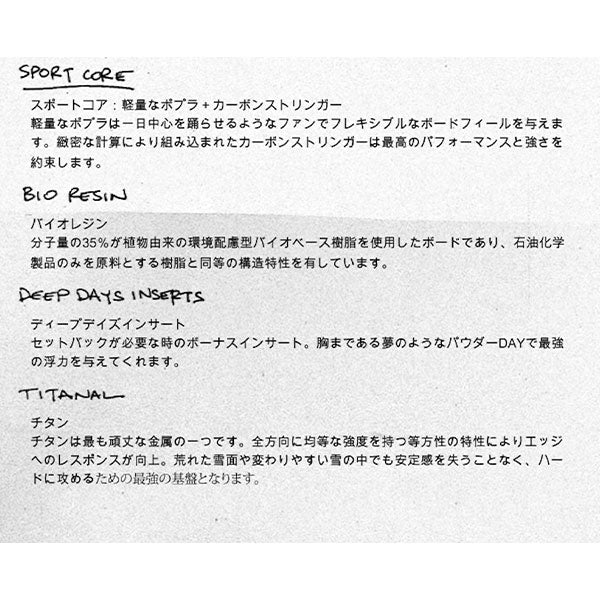 SPORT CORE
スポートコア：軽量なポプラ＋カーボンストリンガー
軽量なポプラは一日中心を踊らせるようなファンでフレキシブルなボードフィールを与えま
す。緻密な計算により組み込まれたカーボンストリンガーは最高のパフォーマンスと強さを
約束します。
BIO RESIN
バイオレジン
分子量の35％が植物由来の環境配慮型バイオベース樹脂を使用したボードであり、石油化学
製品のみを原料とする樹脂と同等の構造特性を有しています。
DEEP DAYS INSERTS
ディープデイズインサート
セットバックが必要な時のボーナスインサート。胸まである夢のようなパウダーDAYで最強
の浮力を与えてくれます。
TITANAL
チタン
チタンは最も頑丈な金属の一つです。全方向に均等な強度を持つ等方性の特性によりエッジ
へのレスポンスが向上。荒れた雪面や変わりやすい雪の中でも安定感を失うことなく、ハー
ドに攻めるための最強の基盤となります。